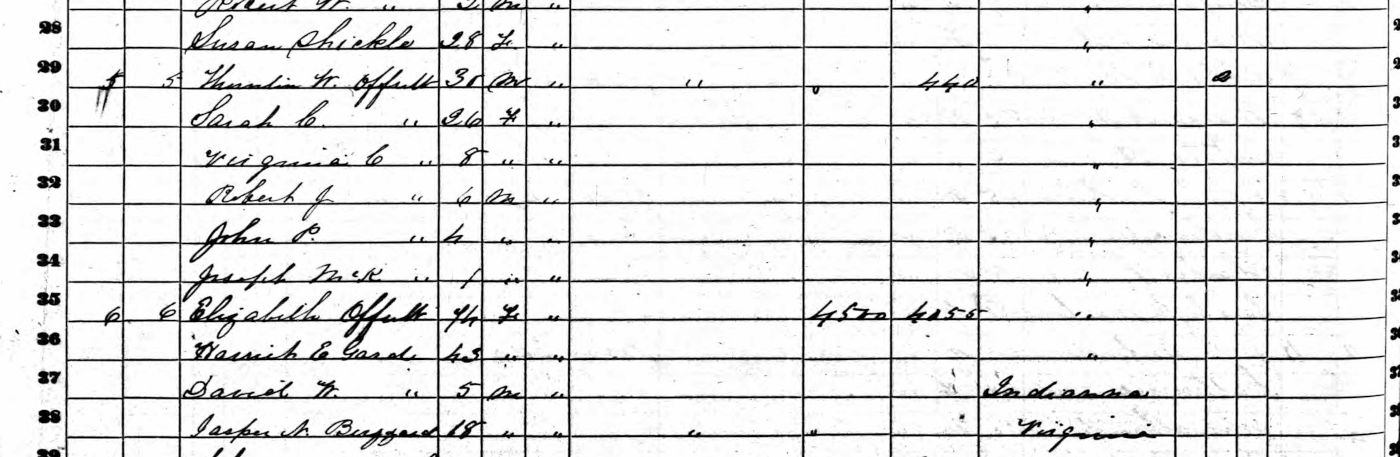 Robert W. " M "
28 Susan Shickle 28 F "
29 5 5 W. Offutt 30 M " " " 440 "
30 Sarah C. " 26 F " "
31 Virginia C " 8 " " "
32 Robert J " 6 M " "
33 John P. " 4 " " "
34 Joseph McK " 1 " " "
35 6 6 Elizabeth Offutt 74 F " 4500 4055 "
36 Harriet E 43 " " "
37 David W. " 5 M " Indianna
38 Jasper N. 18 " " " " Virginia
39